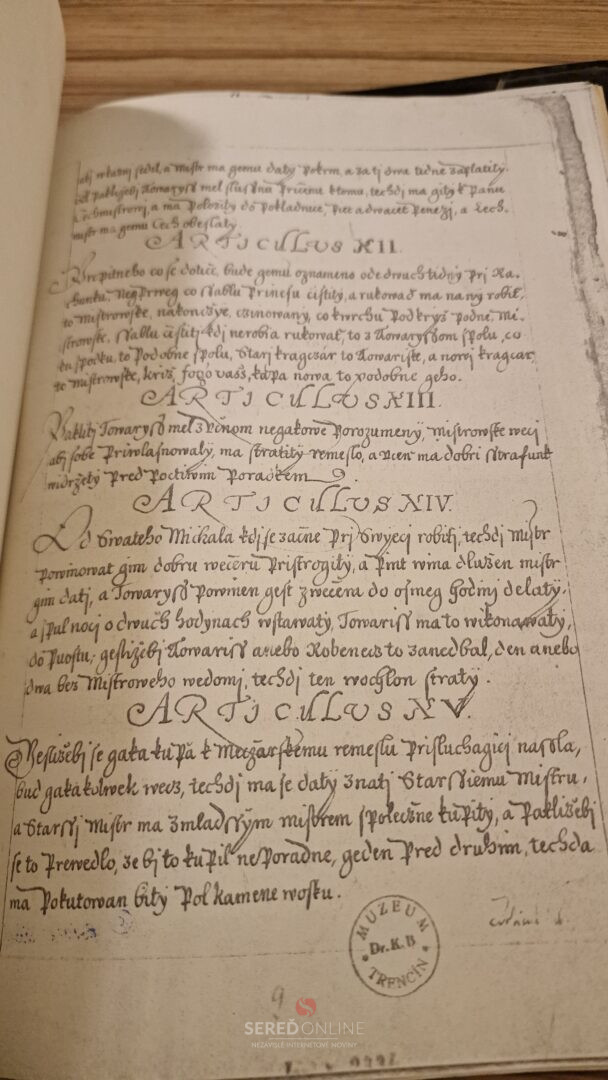 mistr ma gemu daty pokrm, a za tj dwa tidne zaplatity.
Towaryss mel slussnu Pricinu ktomu, techdj ma gitj k Panu
a ma Polozity do pokladnice, Piet a dwacet Penezj, a Cech-
mistr ma gemu Cech obeslaty
ARTICULUS XII
co se dotice, bude gemu oznameno ode dwuch tidny Prj Ra-
chunku, co ssablu Prinesu cistity, a rukowad ma na ny robit,
to Mistrowske, nakoncye, co kwrchu Podkryz Podne, Mi-
strowske, ssablu cistit, kdj nerobia rukowat, to z Towaryssom spolu, co
ku spodku, to Podobne spolu, Starj kragczar to Towariske, a nowj kragczar
to Mistrowske, kriz, kapa nowa to Podobne geho.
ARTICULUS XIII.
Paklity Towaryss mel z Vcnom negakowe Porozumenj, Mistrowske wecj
abj sobe Priwlasnowaly, ma stratity remeslo, a Vcen ma dobri sstrafunk
widrzety Pred Poctiwim Poradkem
ARTICULUS XIV.
Od Swateho Michala kdj se zacne Prj Swyecj robiti, techdj Mistr
Powinowat gim dobru weceru Pristrogity, a Pint wina dluzen mistr
gim datj, a Towaryss Powinen gest zwecera do osmeg hodinj delaty,
a spul noci o dwuch hodynach wstawaty, Towariss ma to wikonawaty,
do Puostu, geslizebj Towariss anebo Robenecz to zanedbal, den anebo
dwa bez Mistroweho wedomj, techdj ten wochlon straty.
ARTICULUS XV.
Geslizebj se gaka kupa k Meczarskemu remeslu Prisluchagicj nassla,
bud gaka kolwek wecz, techdj ma se daty znatj Starssiemu Mistru,
a Starssj Mistr ma z mladssym mistrem spoleczne kupity, a Paklizebj
se to Prewedlo, ze bj to kupil nesporadne, geden Pred druhim, techda
ma Pokutowan bity Pol kamene wosku.
MUZEUM
Dr. K. B
TRENCÍN
9
SEREĎONLINE
NEZÁVISLÉ INTERNETOVÉ NOVINY